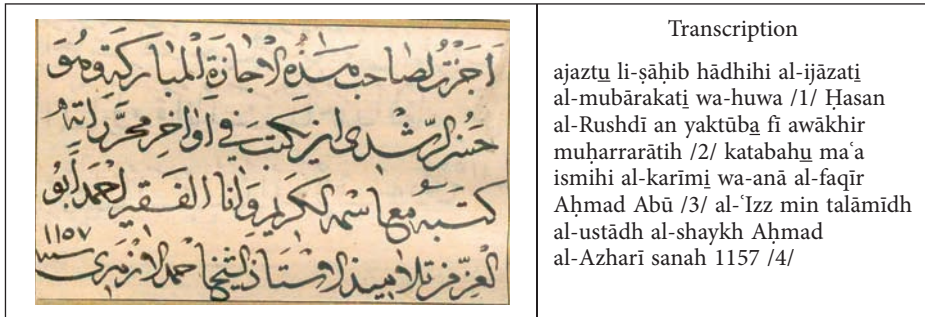 اجزت لصاحب هذه الاجازة المباركة وهو
حسن الرشدى ان يكتب في اواخر محرراته
كتبه مع اسمه الكريم وانا الفقير احمد ابو
العز من تلاميذ الاستاذ الشيخ احمد الازميرى سنه ١١٥٧
Transcription
ajaztu li-ṣāḥib hādhihi al-ijāzati
al-mubārakati wa-huwa /1/ Ḥasan
al-Rushdī an yaktūba fī awākhir
muḥarrarātih /2/ katabahu maʿa
ismihi al-karīmi wa-anā al-faqīr
Aḥmad Abū /3/ al-ʿIzz min talāmīdh
al-ustādh al-shaykh Aḥmad
al-Azharī sanah 1157 /4/